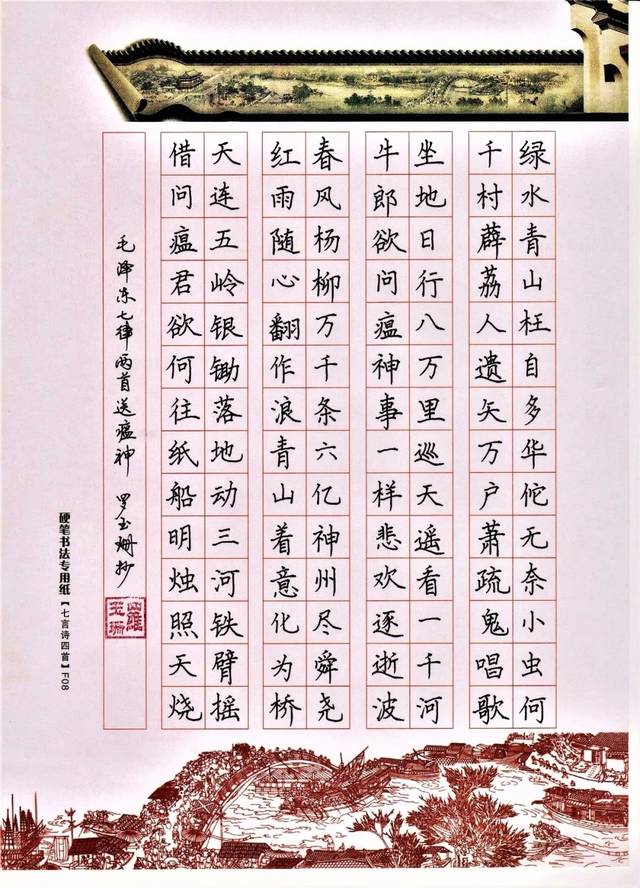 绿水青山枉自多华佗无奈小虫何
千村薜荔人遗矢万户萧疏鬼唱歌
坐地日行八万里巡天遥看一千河
牛郎欲问瘟神事一样悲欢逐逝波
春风杨柳万千条六亿神州尽舜尧
红雨随心翻作浪青山着意化为桥
天连五岭银锄落地动三河铁臂摇
借问瘟君欲何往纸船明烛照天烧
毛泽东七律两首送瘟神 罗玉珊抄
羅玉珊
硬笔书法专用纸【七言诗四首】F08